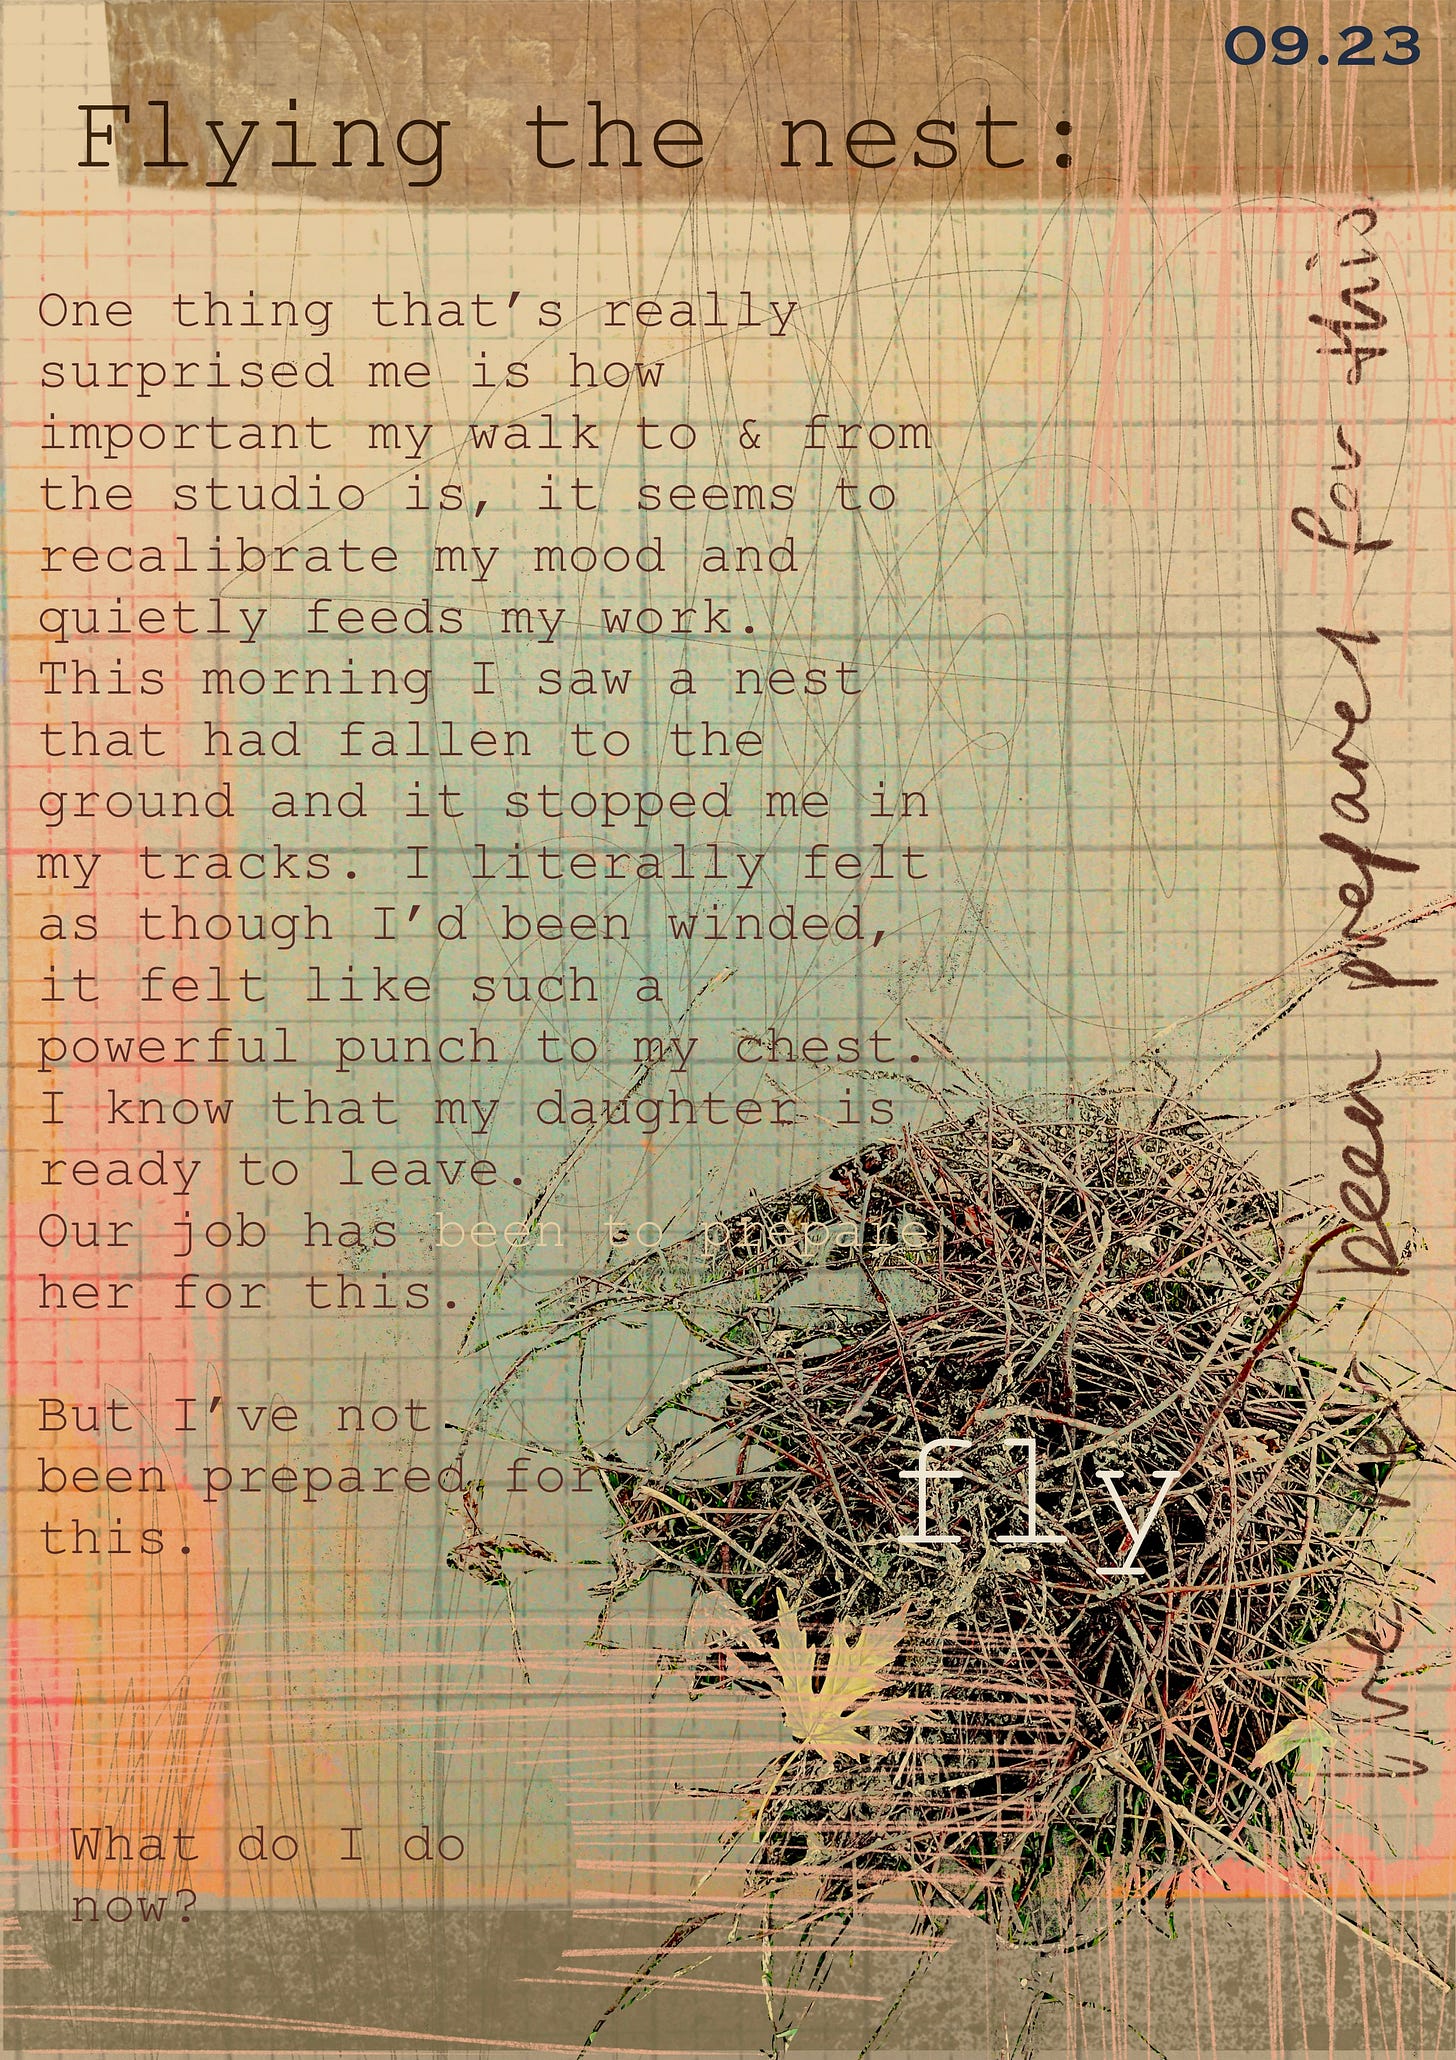 09.23
Flying the nest:
One thing that's really
surprised me is how
important my walk to & from
the studio is, it seems to
recalibrate my mood and
quietly feeds my work.
This morning I saw a nest
that had fallen to the
ground and it stopped me in
my tracks. I literally felt
as though I'd been winded,
it felt like such a
powerful punch to my chest.
I know that my daughter is
ready to leave.
Our job has been to prepare
her for this.
But I've not
been prepared for
this.
fly
What do I do
now?
I've not been prepared for this